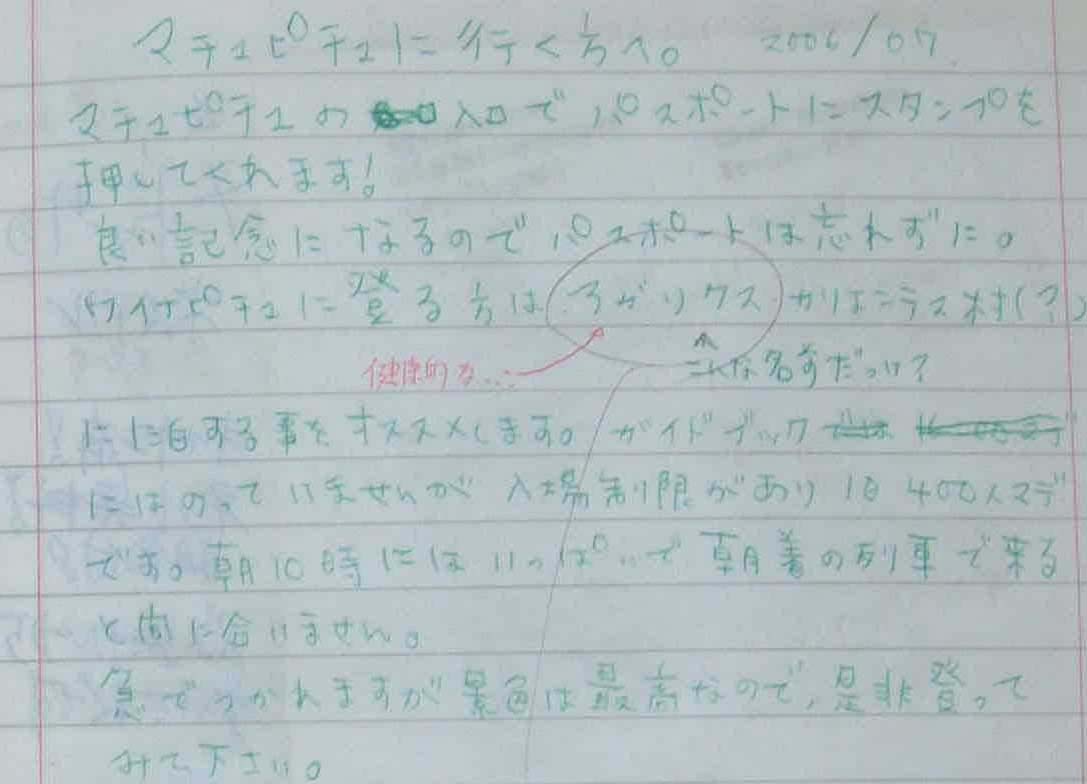 マチュピチュに行く方へ。 2006/07
マチュピチュの 入口でパスポートにスタンプを
押してくれます!
良い記念になるのでパスポートは忘れずに。
ワイナピチュに登る方は アガリクス かりえンテス村(?)
健康的な... こんな名前だっけ?
に1泊する事をオススメします。ガイドブック
にはのっていませんが 入場制限があり 1日 400人マデ
です。朝10時にはいっぱいで 朝着の列車で来る
と間に合いません。
急でつかれますが景色は最高なので、是非登って
みて下さい。